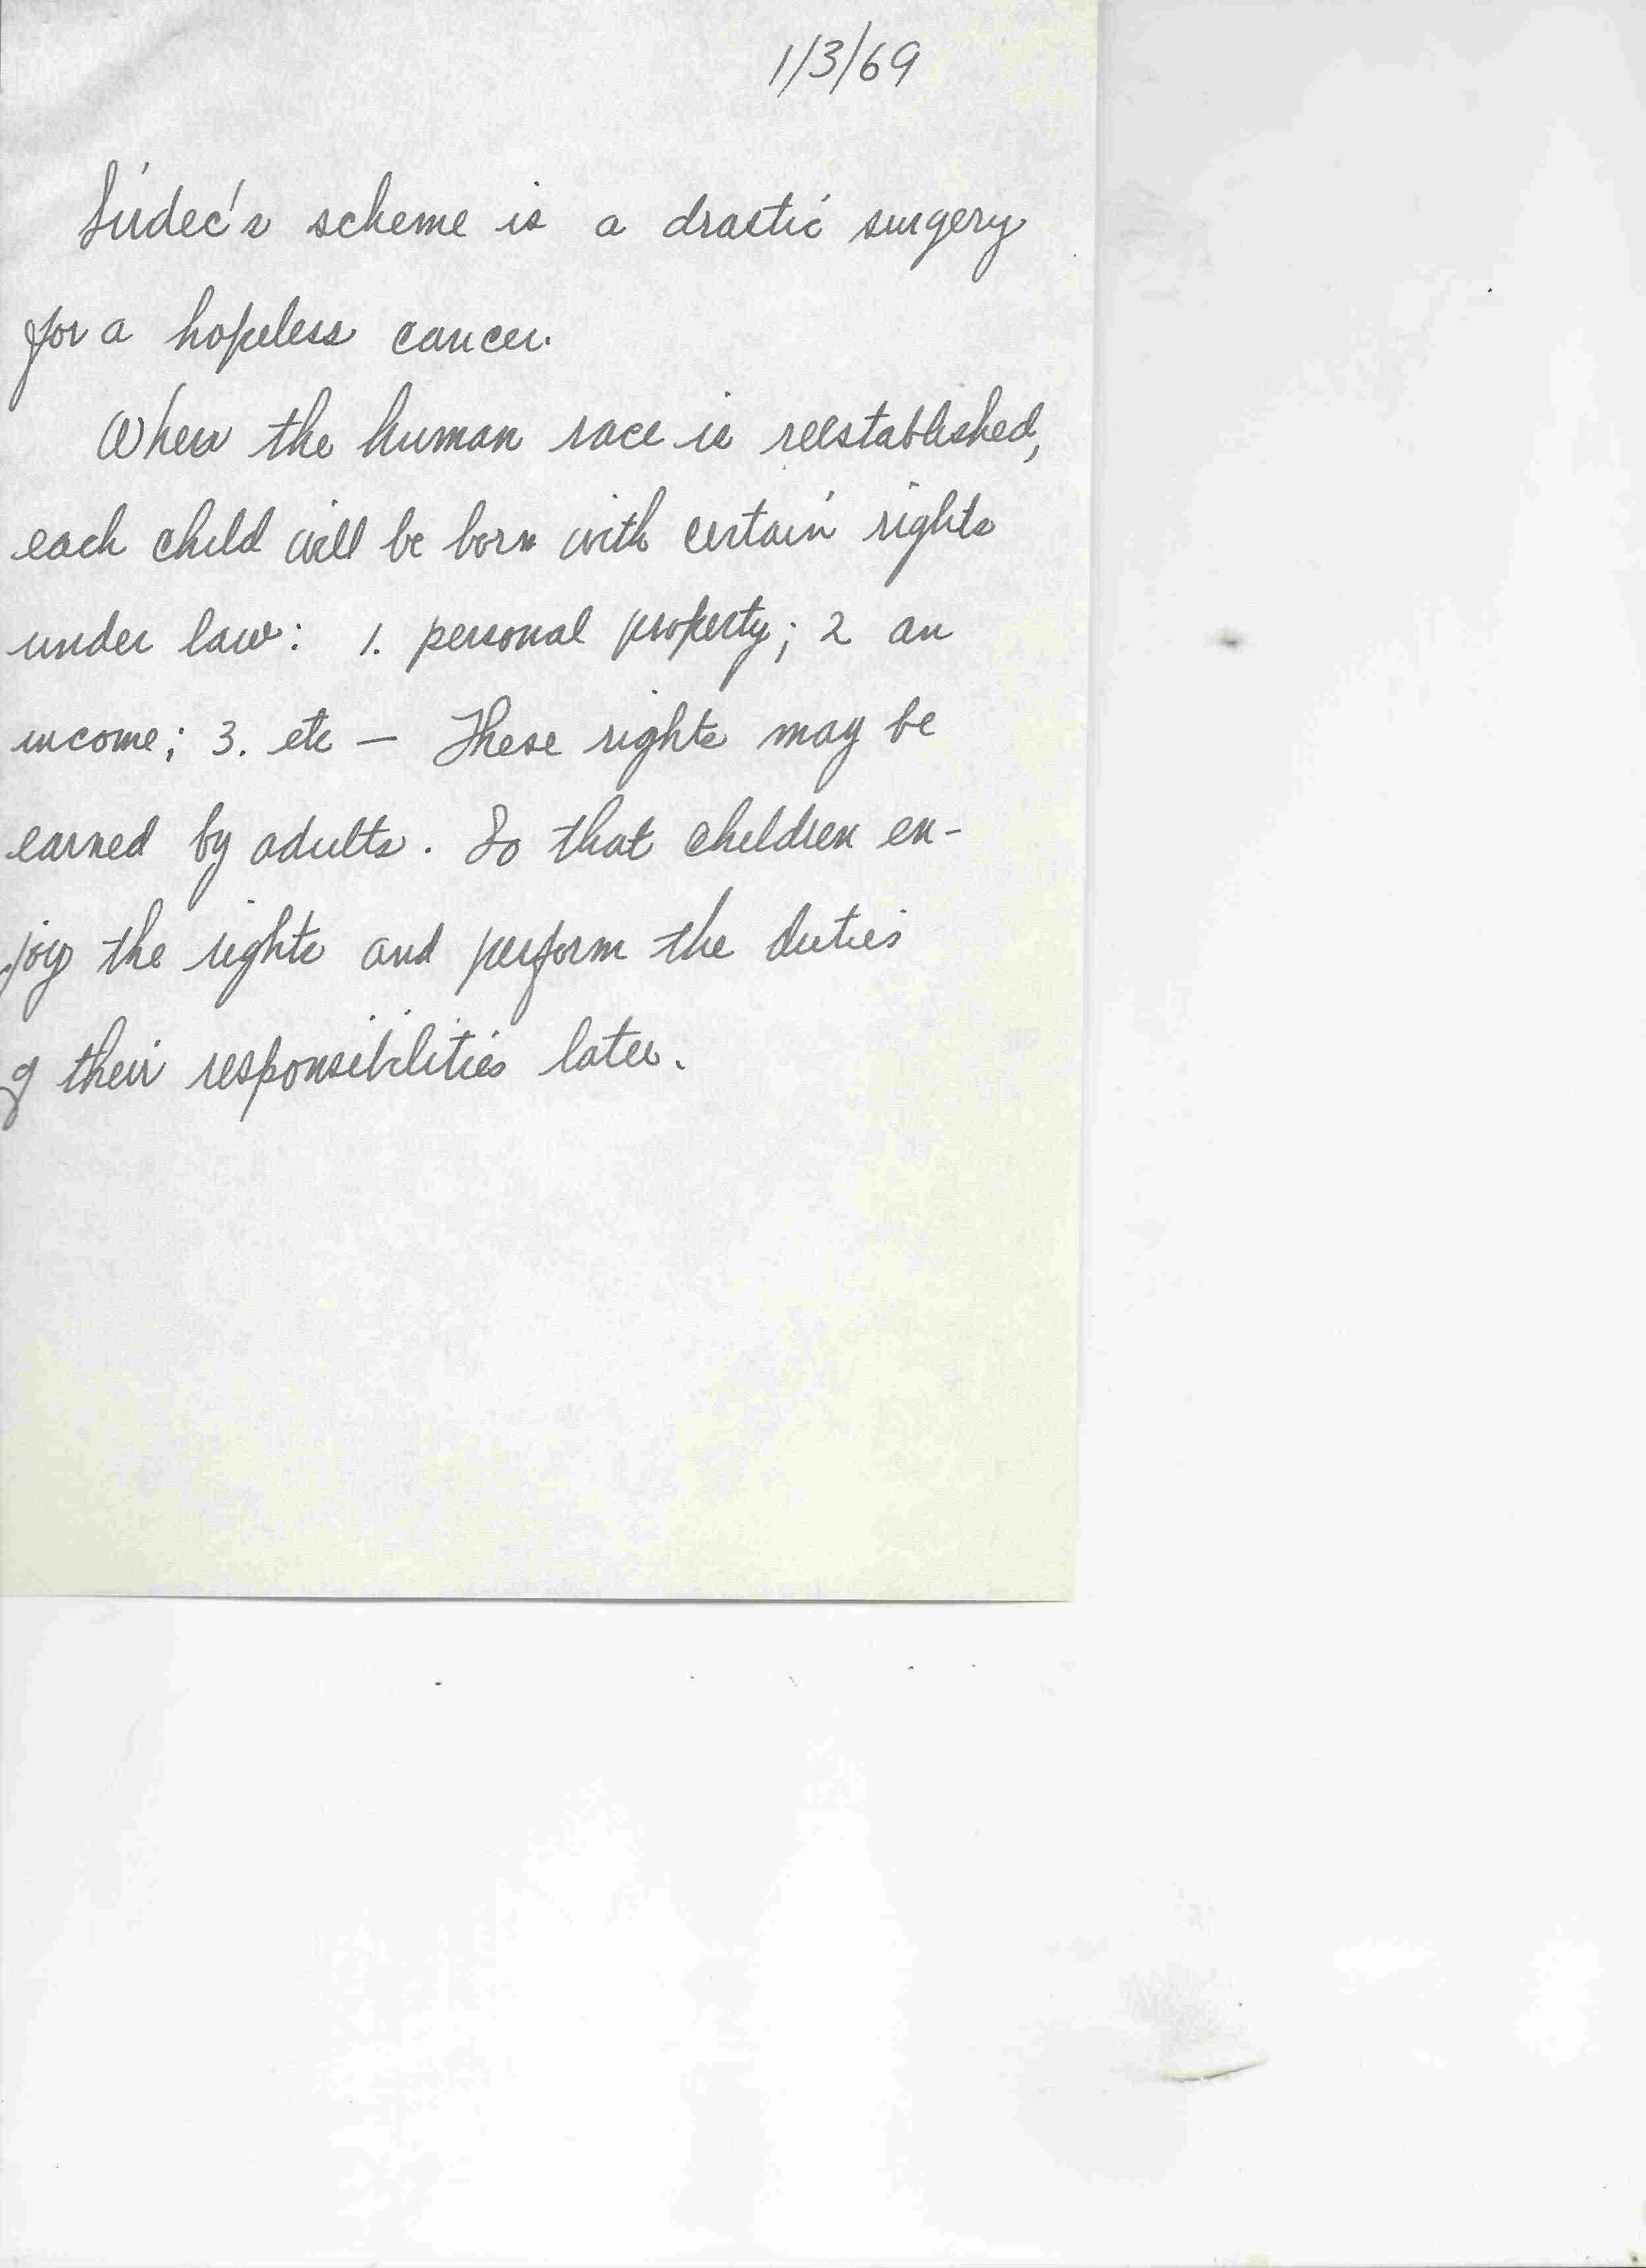 1/3/69
scheme is a drastic surgery
for a hopeless cancer.
When the human race is reestablished,
each child will be born with certain rights
under law: 1. personal property; 2 an
income; 3. etc — These rights may be
earned by adults. So that children en-
joy the rights and perform the duties
of their responsibilities later.